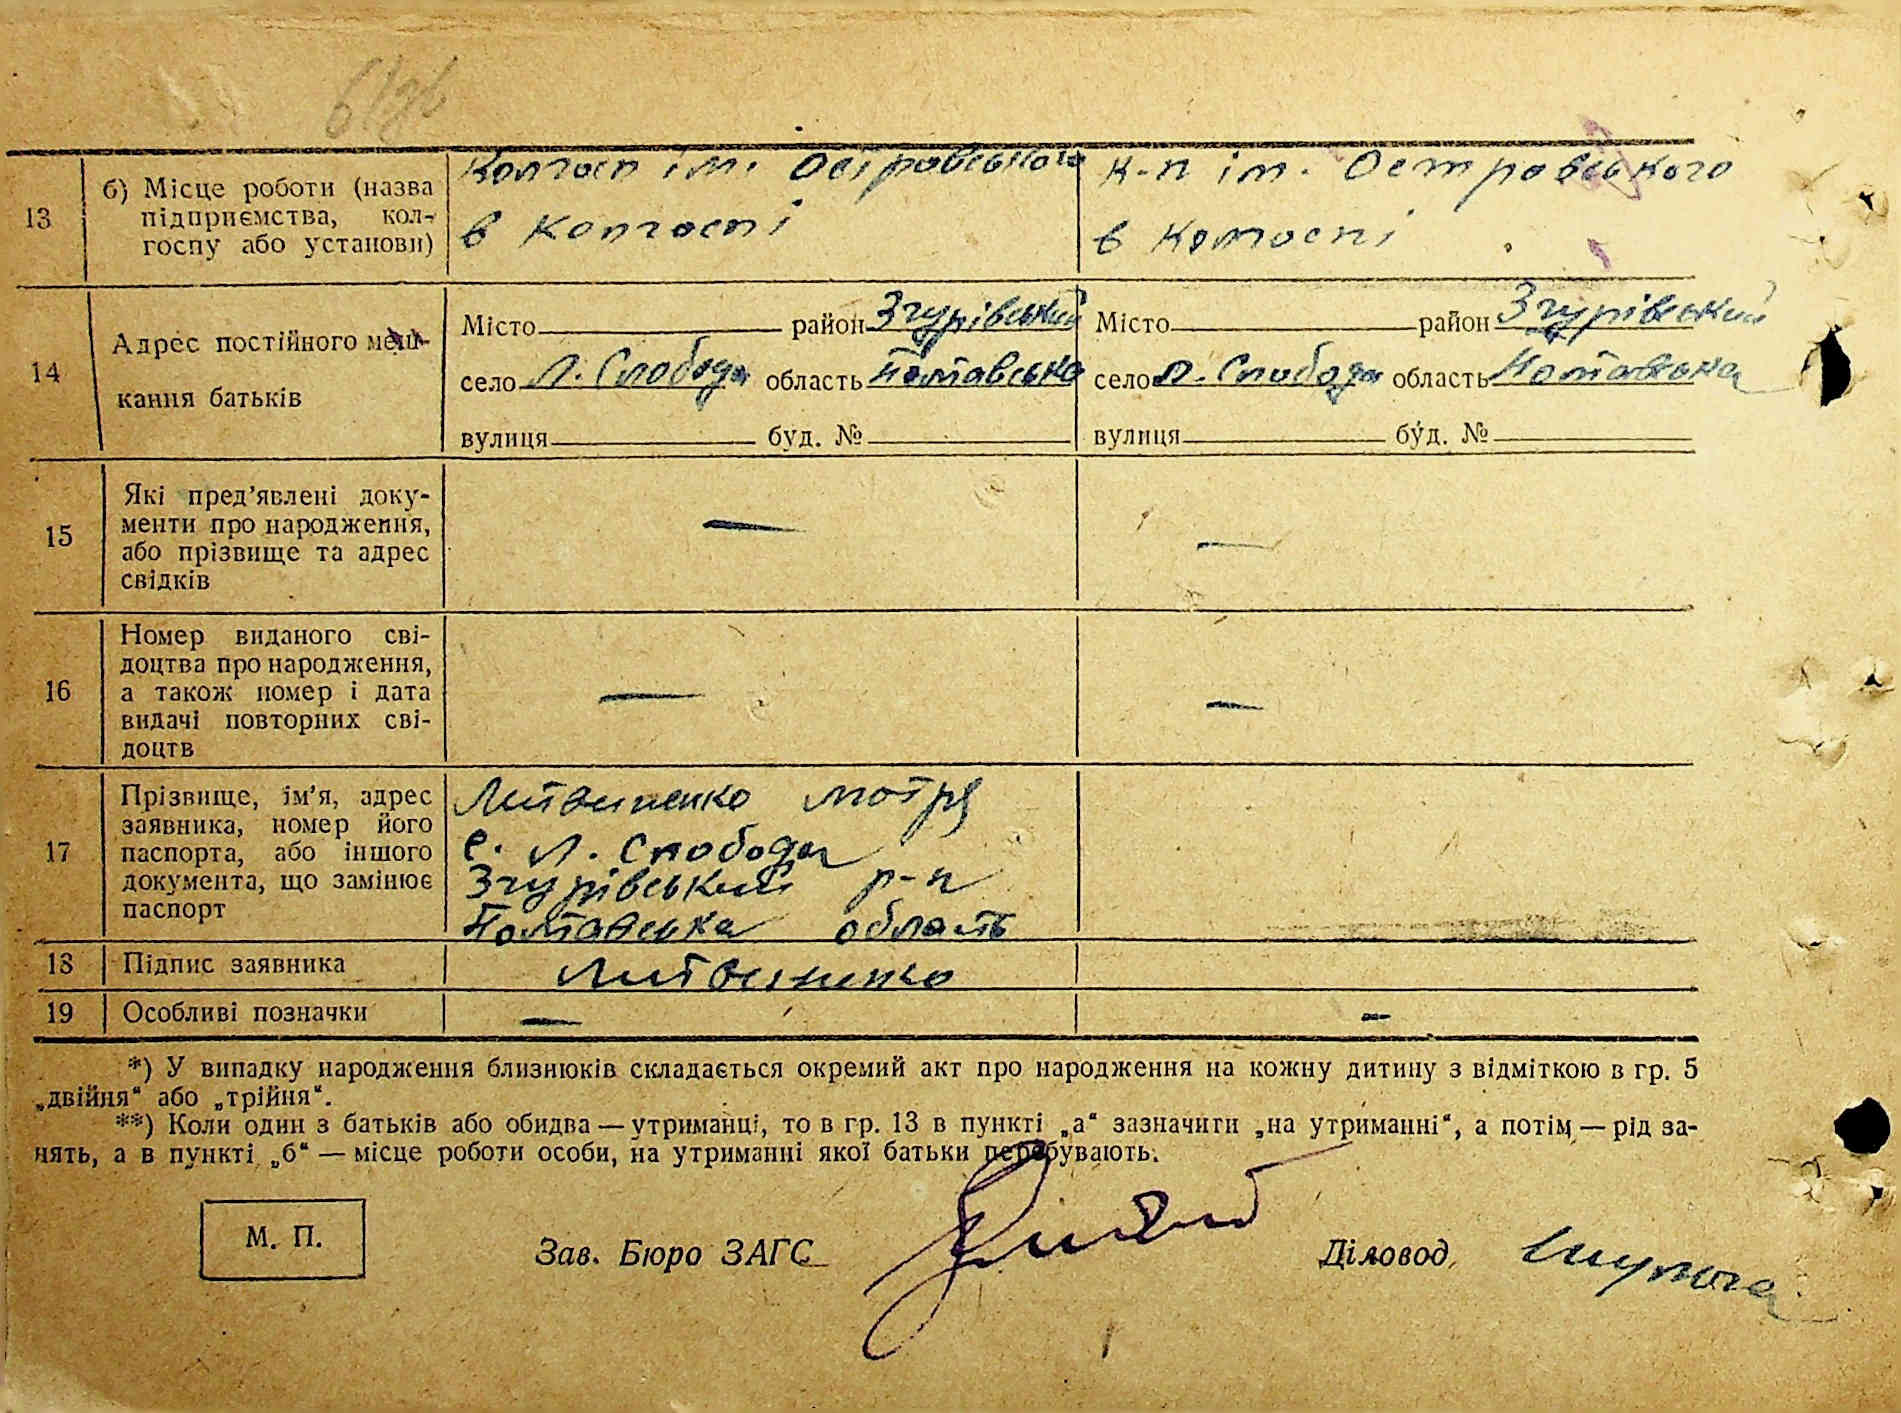 13 б) Місце роботи (назва підприємства, кол-госпу або установи)
Колгосп ім. Островського
в колгоспі
к-п ім. Островського
в колгоспі
14 Адрес постійного меш-кання батьків
Місто район Згурівський
село Л. Слобода область Полтавська
вулиця буд. №
Місто район Згурівський
село Л. Слобода область Полтавська
вулиця буд. №
15 Які пред’явлені доку-
менти про народження,
або прізвище та адрес
свідків
—
—
16 Номер виданого сві-
доцтва про народження,
а також номер і дата
видачі повторних сві-
доцтв
—
—
17 Прізвище, ім’я, адрес
заявника, номер його
паспорта, або іншого
документа, що замінює
паспорт
Литвиненко Мотря
с. Л. Слобода
Згурівський р-н
Полтавська область
18 Підпис заявника Литвиненко
19 Особливі позначки — —
*) У випадку народження близнюків складається окремий акт про народження на кожну дитину з відміткою в гр. 5
„двійня“ або „трійня“.
**) Коли один з батьків або обидва — утриманці, то в гр. 13 в пункті „а“ зазначити „на утриманні“, а потім — рід за-
нять, а в пункті „б“ — місце роботи особи, на утриманні якої батьки перебувають.
М. П. Зав. Бюро ЗАГС Діловод